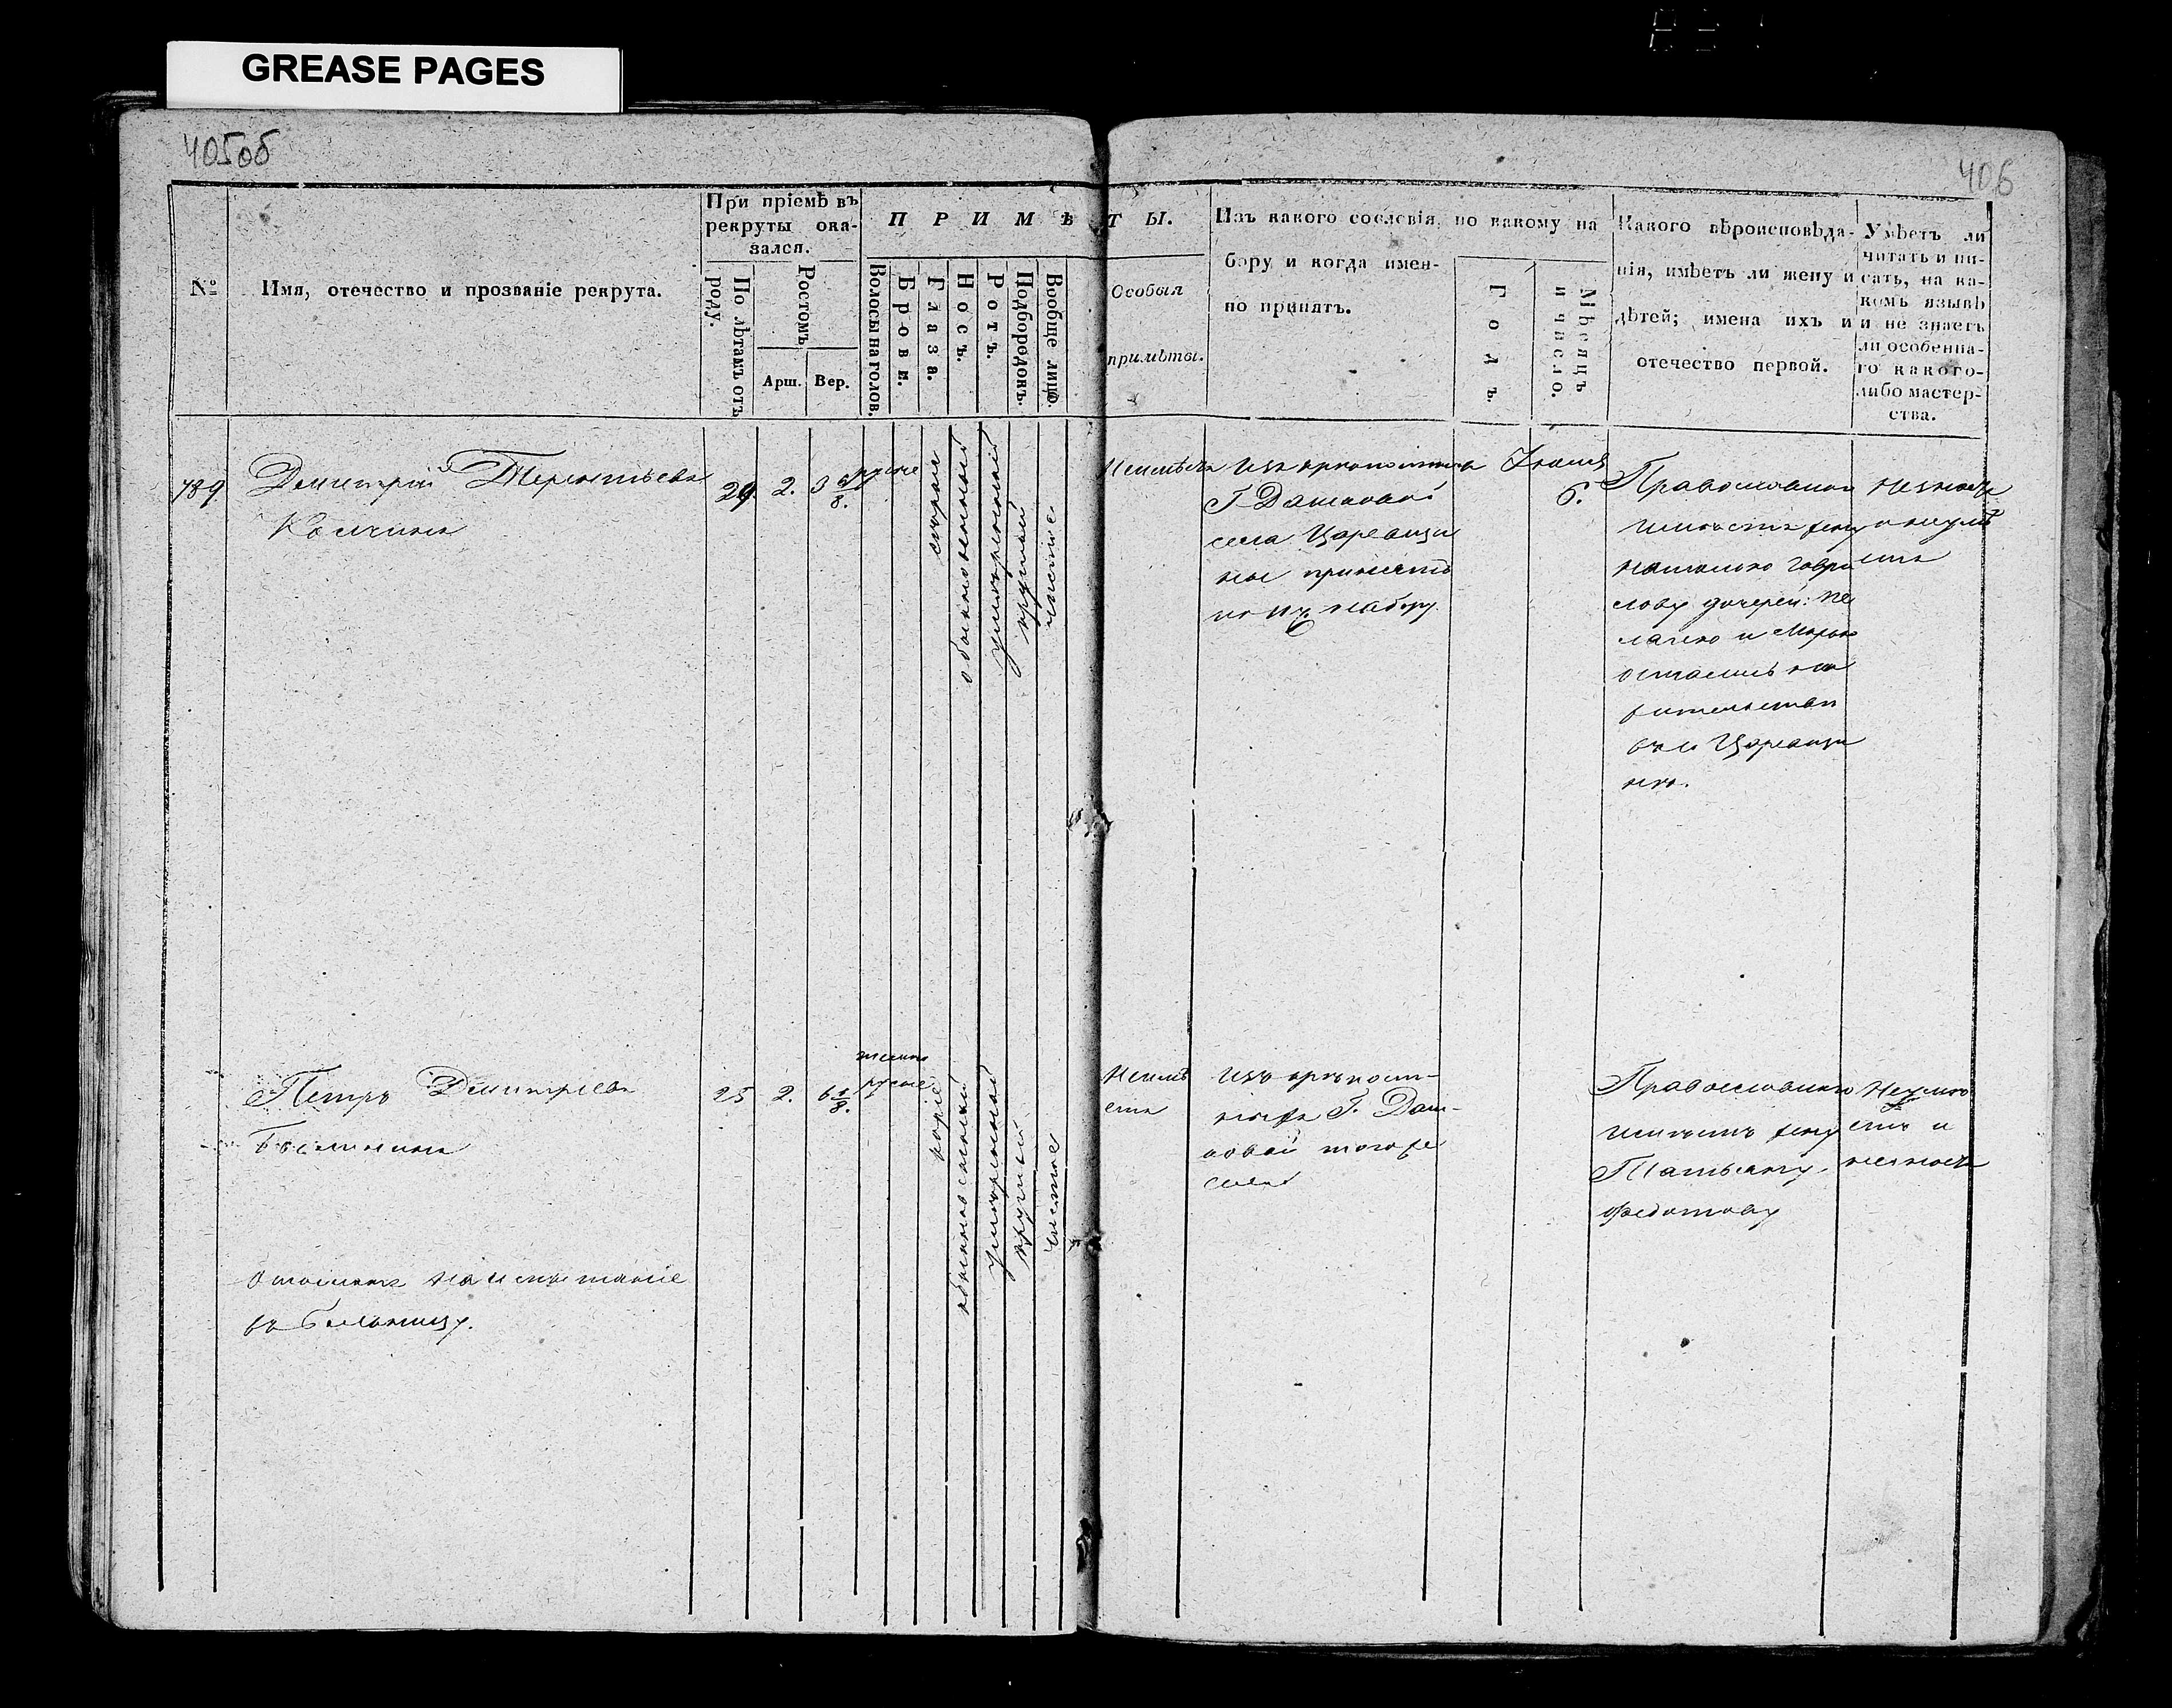 GREASE PAGES
405об
406
№
Имя, отечество и прозваніе рекрута.
При пріемѣ въ
рекруты ока-
зался.
По лѣтамъ отъ
роду.
Ростомъ
Арш.
Вер.
ПРИМѢТЫ.
Волосы на голов.
Брови.
Глаза.
Носъ.
Ротъ.
Подбородокъ.
Вообще лице.
Особыя
примѣты.
Изъ какого сословія, по какому на
бору и когда имен-
но принятъ.
Годъ.
Мѣсяцъ
и число.
Какого вѣроисповѣда-
нія, имѣетъ ли жену и
дѣтей; имена ихъ и
отечество первой.
Умѣетъ ли
читать и пи-
сать, на ка-
комъ языкѣ
и не знаетъ
ли особенна-
го какого-
либо мастер-
ства.
789
Дмитрій Терентьевъ
29
2.
3 6/8.
русые
сѣрые
обыкновенный
умѣренный
круглый
чистое
Изъ крѣпостныхъ
Г Дашковой
села Царевщи
ны принятъ
набору
6.
Православнаго
имѣетъ жену
Наталью Гаври
лову дочерей: Пе
лагею и Марью
остались на
жительствѣ
въ с Царевщи
нѣ.
Петръ Дмитріевъ
25
2.
6 1/8.
темно
русые
каріе
обыкновенный
умѣренный
круглый
чистое
Неимѣ
етъ
Изъ крѣпост-
ныхъ Г. Даш-
ковой того же
села
Православнаго
имѣетъ жену
Татьяну
Федотову
Неумѣ
етъ и
незнаетъ
Отосланъ на испытаніе
въ больницу.